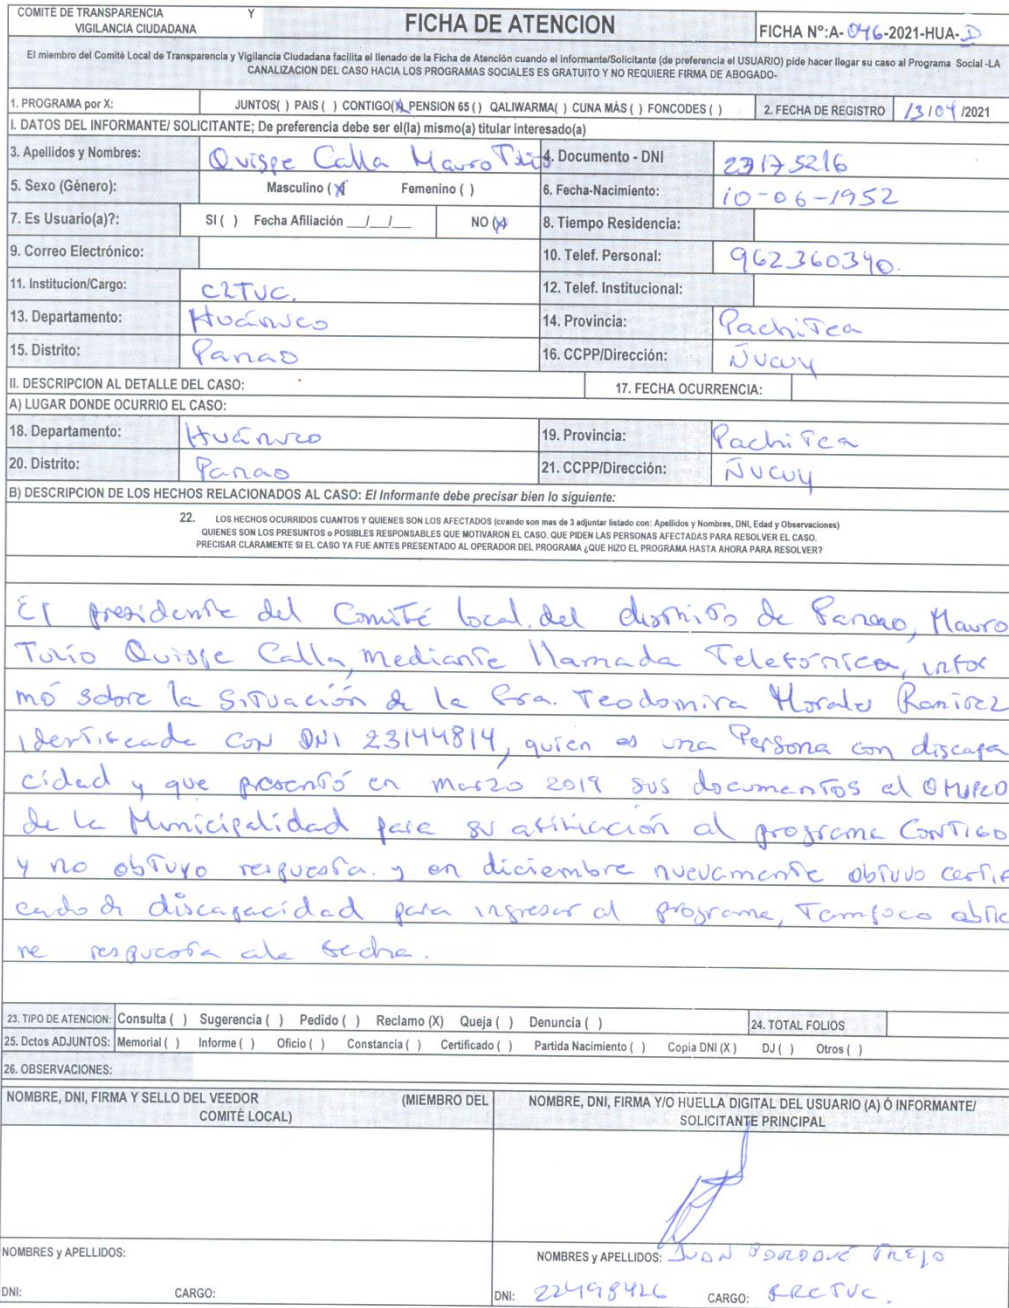 COMITÉ DE TRANSPARENCIA Y
VIGILANCIA CIUDADANA
FICHA DE ATENCION
FICHA N°:A- 046-2021-HUA-D
El miembro del Comité Local de Transparencia y Vigilancia Ciudadana facilita el llenado de la Ficha de Atención cuando el informante/Solicitante (de preferencia el USUARIO) pide hacer llegar su caso al Programa Social -LA
CANALIZACION DEL CASO HACIA LOS PROGRAMAS SOCIALES ES GRATUITO Y NO REQUIERE FIRMA DE ABOGADO-
1. PROGRAMA por X: JUNTOS( ) PAIS ( ) CONTIGO(X) PENSION 65 ( ) QALIWARMA( ) CUNA MÁS ( ) FONCODES ( ) 2. FECHA DE REGISTRO 13/04/2021
I. DATOS DEL INFORMANTE/ SOLICITANTE; De preferencia debe ser el(la) mismo(a) titular interesado(a)
3. Apellidos y Nombres: Quispe Calla Mauro 4. Documento - DNI 23175216
5. Sexo (Género): Masculino (X) Femenino ( ) 6. Fecha-Nacimiento: 10-06-1952
7. Es Usuario(a)?: SI ( ) Fecha Afiliación __/__/__ NO (X) 8. Tiempo Residencia:
9. Correo Electrónico: 10. Telef. Personal: 962360390.
11. Institucion/Cargo: CLTVC. 12. Telef. Institucional:
13. Departamento: Huánuco 14. Provincia: Pachitea
15. Distrito: Panao 16. CCPP/Dirección: Ñucuy
II. DESCRIPCION AL DETALLE DEL CASO: 17. FECHA OCURRENCIA:
A) LUGAR DONDE OCURRIO EL CASO:
18. Departamento: Huánuco 19. Provincia: Pachitea
20. Distrito: Panao 21. CCPP/Dirección: Ñucuy
B) DESCRIPCION DE LOS HECHOS RELACIONADOS AL CASO: El Informante debe precisar bien lo siguiente:
22. LOS HECHOS OCURRIDOS CUANTOS Y QUIENES SON LOS AFECTADOS (cuando son mas de 3 adjuntar listado con: Apellidos y Nombres, DNI, Edad y Observaciones)
QUIENES SON LOS PRESUNTOS o POSIBLES RESPONSABLES QUE MOTIVARON EL CASO. QUE PIDEN LAS PERSONAS AFECTADAS PARA RESOLVER EL CASO.
PRECISAR CLARAMENTE SI EL CASO YA FUE ANTES PRESENTADO AL OPERADOR DEL PROGRAMA ¿QUE HIZO EL PROGRAMA HASTA AHORA PARA RESOLVER?
El presidente del Comité local. del distrito de Panao, Mauro
Tulio Quispe Calla, mediante llamada Telefónica, infor
mó sobre la situación de la Sra. Teodomira Morales Ramirez
identificada con DNI 23144814, quien es una Persona con discapa
cidad y que presentó en marzo 2019 sus documentos al OMAPED
de la Municipalidad para su afiliación al programa CONTIGO
y no obtuvo respuesta. y en diciembre nuevamente obtuvo certifi
cado de discapacidad para ingresar al programa, Tampoco obtie
ne respuesta a la fecha.
23. TIPO DE ATENCION: Consulta ( ) Sugerencia ( ) Pedido ( ) Reclamo (X) Queja ( ) Denuncia ( ) 24. TOTAL FOLIOS
25. Dctos ADJUNTOS: Memorial ( ) Informe ( ) Oficio ( ) Constancia ( ) Certificado ( ) Partida Nacimiento ( ) Copia DNI (X ) DJ ( ) Otros ( )
26. OBSERVACIONES:
NOMBRE, DNI, FIRMA Y SELLO DEL VEEDOR (MIEMBRO DEL
COMITÉ LOCAL)
NOMBRE, DNI, FIRMA Y/O HUELLA DIGITAL DEL USUARIO (A) Ó INFORMANTE/
SOLICITANTE PRINCIPAL
NOMBRES y APELLIDOS:
NOMBRES y APELLIDOS: JUAN TREJO
DNI: CARGO:
DNI: 22498426 CARGO: